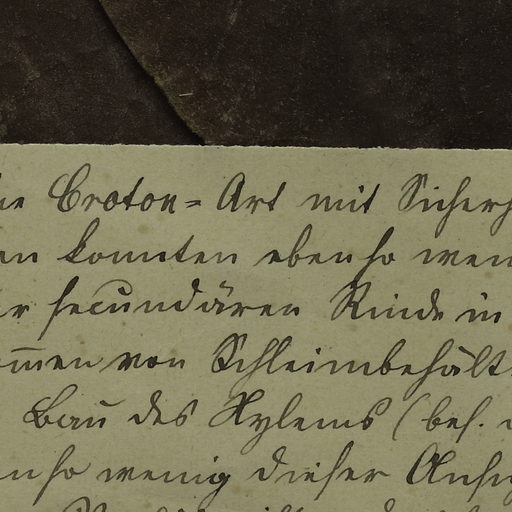 Croton-Art mit Sicherh
en konnten ebenso wen
er secundären Rinde in
ommen von Schleimbehält
Bau des Xylems (bes.
enso wenig dieser Ansi